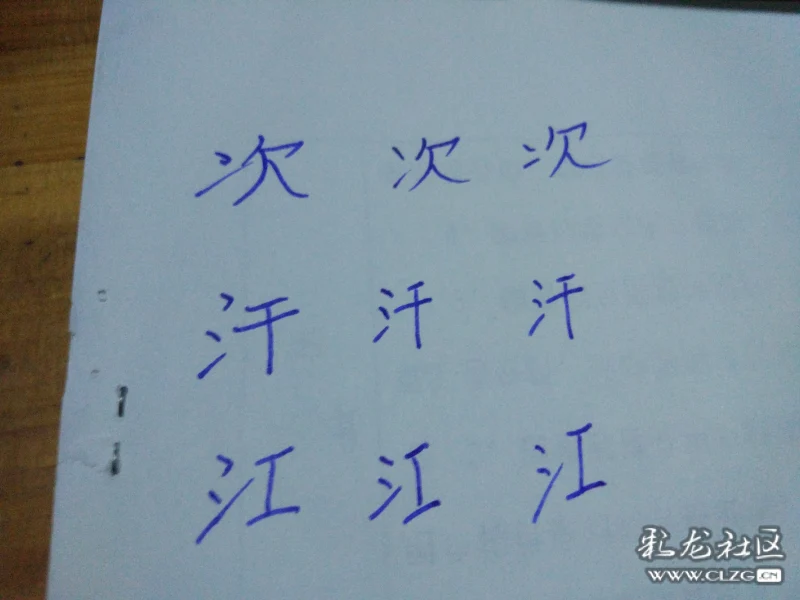 次 次 次
汗 汗 汗
江 江 江
彩龙社区
WWW.CLZG.CN